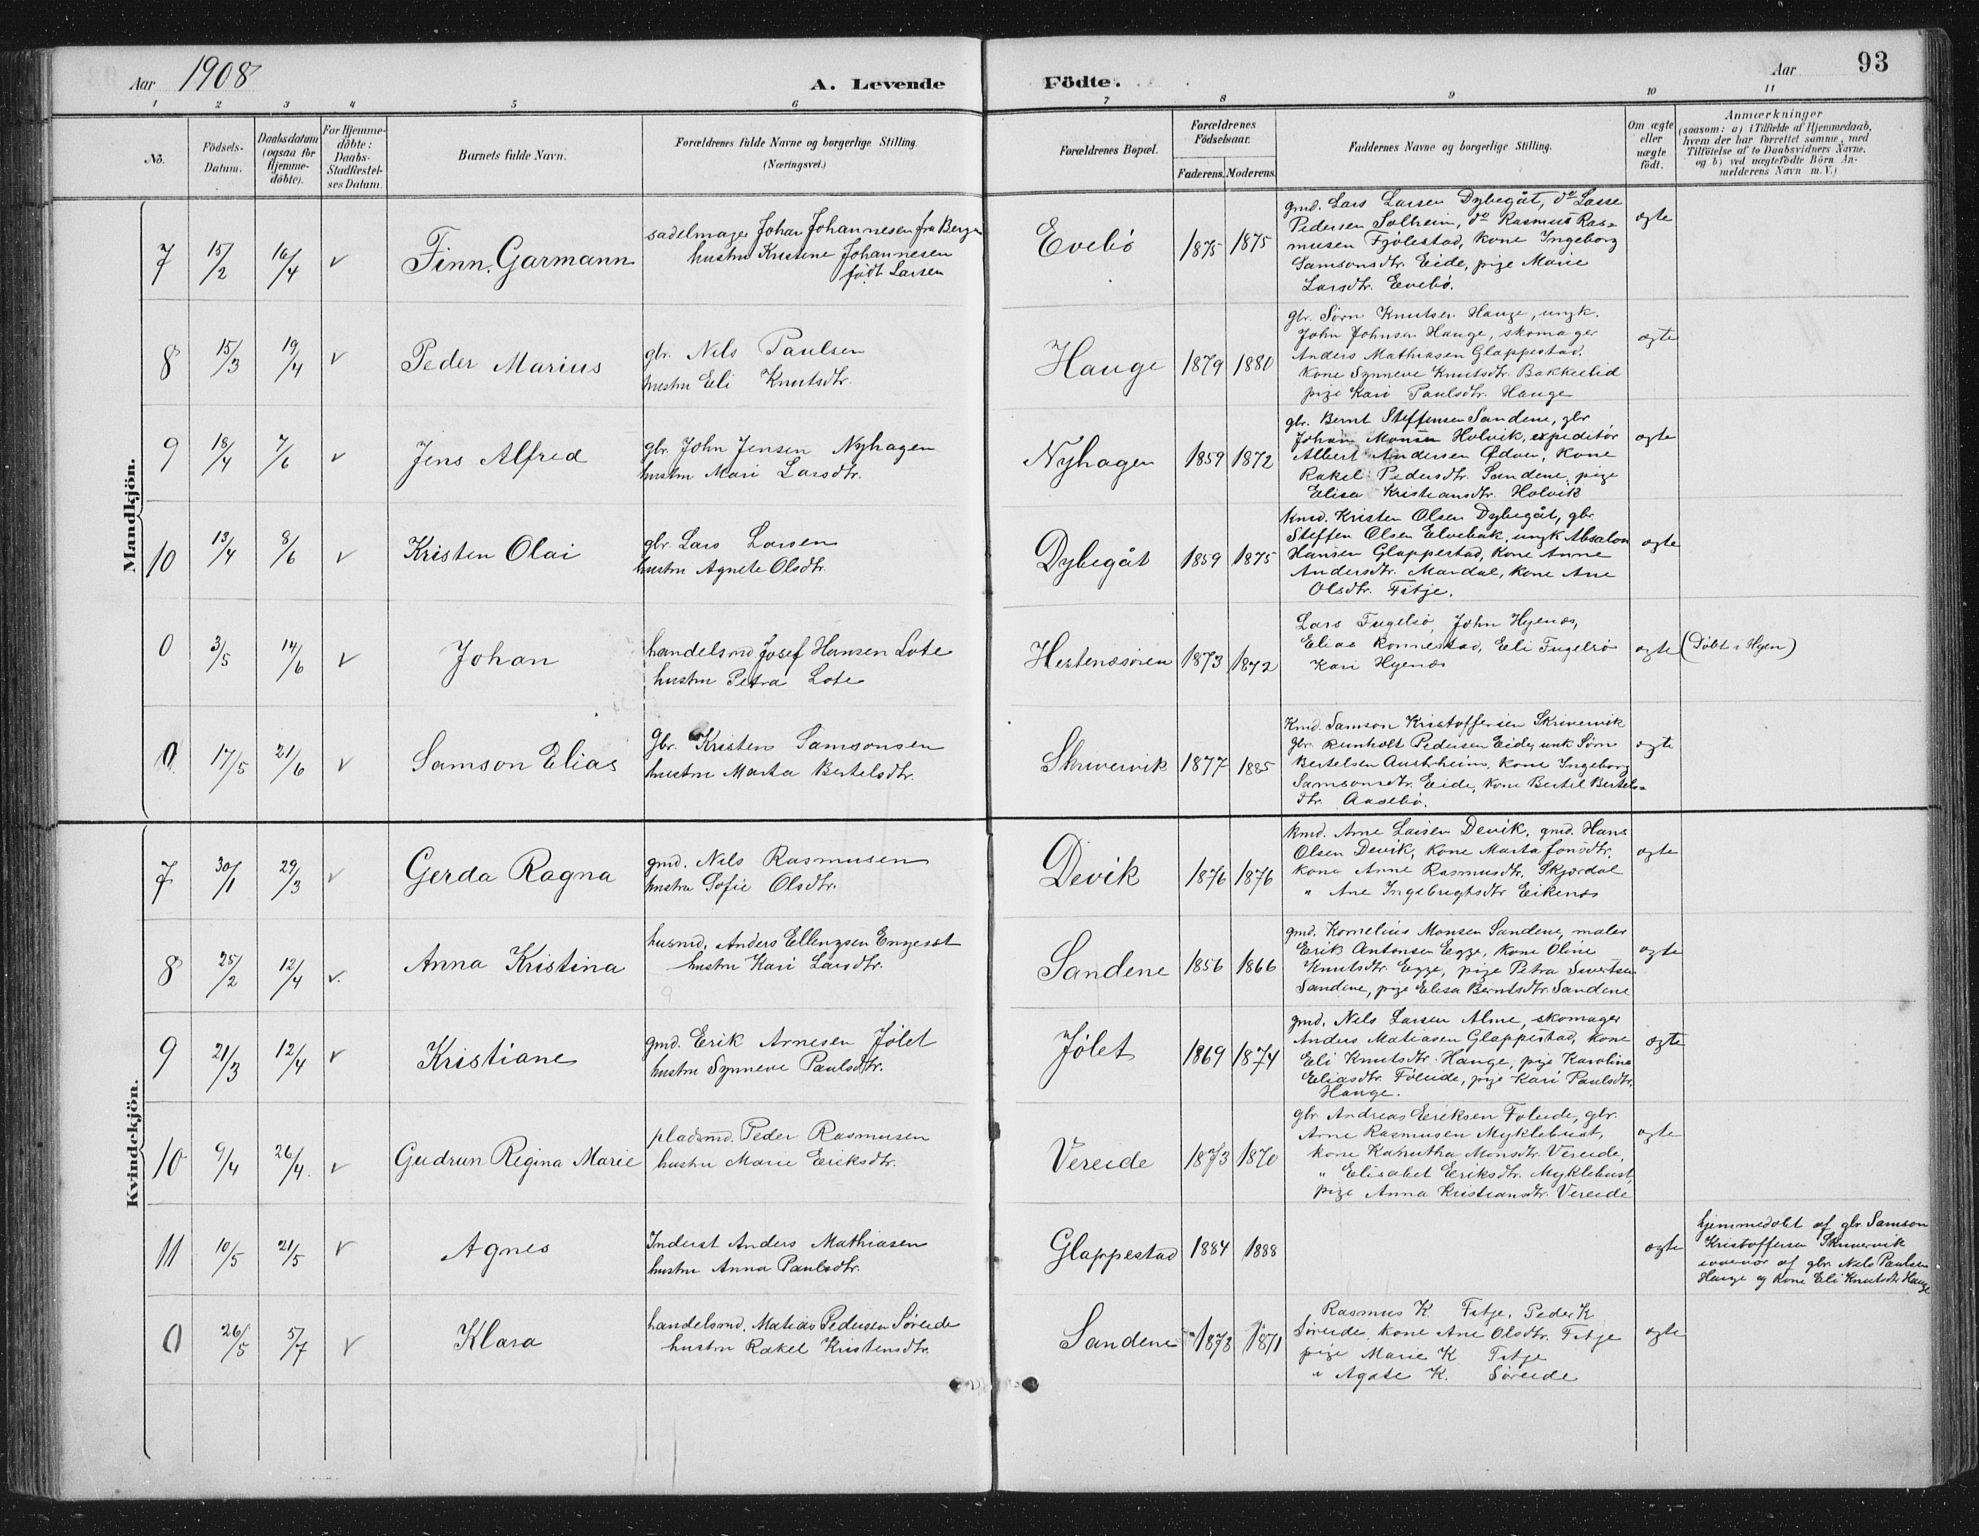 Aar 1908 A. Levende Födte. Aar 93
1 2 3 4 5 6 7 8 9 10 11
No.
Födsels-Datum.
Daabsdatum (ogsaa for Hjemme-döbte).
For Hjemme-döbte: Daabs-Stadfæstel-ses Datum.
Barnets fulde Navn.
Forældrenes fulde Navne og borgerlige Stilling. (Næringsvei.)
Forældrenes Bopæl.
Forældrenes Födselsaar.
Faderens. Moderens.
Faddernes Navne og borgerlige Stilling.
Om ægte eller uægte födt.
Anmærkninger
(saasom: a) i Tilfælde af Hjemmedaab,
hvem der har forrettet samme, med
Tilföielse af to Daabsvidners Navne,
og b) ved uægtefödte Börn An-
melderens Navn m. V.)
Mandkjön.
7 15/2 16/4 v Finn Garmann
sadelmager Johan Johannesen fra Bergen
hustru Kristine Johannesen
født Larsen
Evebø 1875 1875
gmd. Lars Larsen Dybegåt, do Lasse
Pedersen Solheim, do Rasmus Ras-
musen Fjølestad, kone Ingeborg
Samsonsdtr. Eide, pige Marie
Larsdtr. Evebø.
ægte
8 15/3 19/4 v Peder Marius
gbr. Nils Paulsen
hustru Eli Knutsdtr.
Hauge 1879 1880
gbr. Sørn Knutsen Hauge, ungk.
John Johnsen Hauge, skomager
Anders Mathiasen Glappestad.
kone Synneve Knutsdtr. Bakkelid
pige Kari Paulsdtr. Hauge
ægte
9 18/4 7/6 v Jens Alfred
gbr. John Jensen Nyhagen
hustru Mari Larsdtr.
Nyhagen 1859 1872
gbr. Bernt Steffensen Sandene, gbr
Johan Monsen Holvik, expeditør
Albert Andersen Ødven, kone
Rakel Pedersdtr. Sandene, pige
Elisa Kristiansdtr. Holvik
ægte
10 13/4 8/6 v Kristen Olai
gbr. Lars Larsen
hustru Agnete Olsdtr.
Dybegåt 1859 1875
kmd. Kristen Olsen Dybegåt, gbr.
Steffen Olsen Elvebak, ungk Absalon
Hansen Glappestad, kone Anne
Andersdtr. Mardal, kone Ane
Olsdtr. Fitje.
ægte
0 3/5 14/6 v Johan
handelsmd Josef Hansen Lote
hustru Petra Lote
Hestenesøren 1873 1872
Lars Fugelsø, John Hyenes,
Elias Ronnestad, Eli Fugelsø
Kari Hyenes
ægte (Døbt i Hyen)
0 17/5 21/6 v Samson Elias
Gbr. Kristen Samsonsen
hustru Marta Bertelsdtr.
Skrivervik 1877 1885
Kmd. Samson Kristoffersen Skrivervik
gbr. Reinholt Pedersen Eide, unk Sørn
Bertelsen Austrheim, kone Ingeborg
Samsonsdtr. Eide, kone Bertel Bertels-
dtr. Aasebø.
ægte
Kvindekjön.
7 30/1 29/3 v Gerda Ragna
gmd. Nils Rasmusen
hustru Sofie Olsdtr.
Devik 1876 1876
kmd. Arne Larsen Devik, gmd. Hans
Olsen Devik, kone Marta Jonsdtr.
kone Anne Rasmusdtr. Skjerdal
" Ane Ingebrigtsdtr Eikenes
ægte
8 25/2 12/4 v. Anna Kristina
husmd. Anders Ellingsen Engeset
hustru Kari Larsdtr.
Sandene 1856 1866
gmd. Kornelius Monsen Sandene, maler
Erik Antonsen Egge, kone Oline
Knutsdtr. Egge, pige Petra Sivertsen
Sandene, pige Elisa Berntsdtr. Sandene
ægte
9 21/3 12/4 v Kristiane
gmd. Erik Arnesen Jølet
hustru Synneve Paulsdtr.
Jølet 1869 1874
gmd. Nils Larsen Alme, skomager
Anders Matiasen Glappestad, kone
Eli Knutsdtr. Hauge, pige Karolina
Eliasdtr. Føleide, pige Kari Paulsdtr.
Hauge.
ægte
10 9/4 26/4. v Gudrun Regina Marie
pladsmd. Peder Rasmusen
hustru Marie Eriksdtr.
Vereide 1873 1870
gbr. Andreas Eriksen Føleide, gbr.
Arne Rasmusen Myklebust,
kone Kanutha Monsdtr. Vereide,
" Elisabet Eriksdtr. Myklebust,
pige Anna Kristiansdtr. Vereide
ægte
11 10/5 21/5 v Agnes
Inderst Anders Mathiasen
hustru Anna Paulsdtr.
Glappestad 1884 1888
ægte
hjemmedøbt af gbr. Samson
Kristoffersen Skrivervik
iovervær af gbr. Nils Paulsen
Hauge og kone Eli Knutsdtr. Hauge
0 26/5 5/7 v Klara
handelsmd. Matias Pedersen Søreide
hustru Rakel Kristensdtr.
Sandene 1873 1871
Rasmus K. Fitje, Peder K
Søreide, kone Ane Olsdtr. Fitje
pige Marie K. Fitje
" Agate K. Søreide
ægte